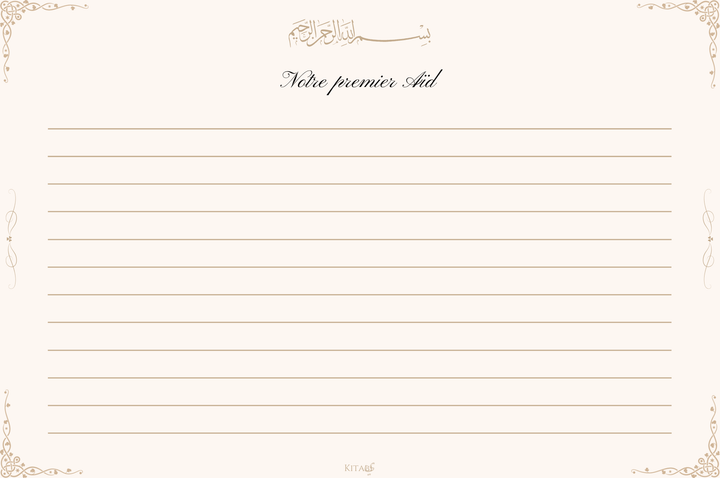 بسم الله الرحمن الرحيم
Notre premier Aïd
KITABS